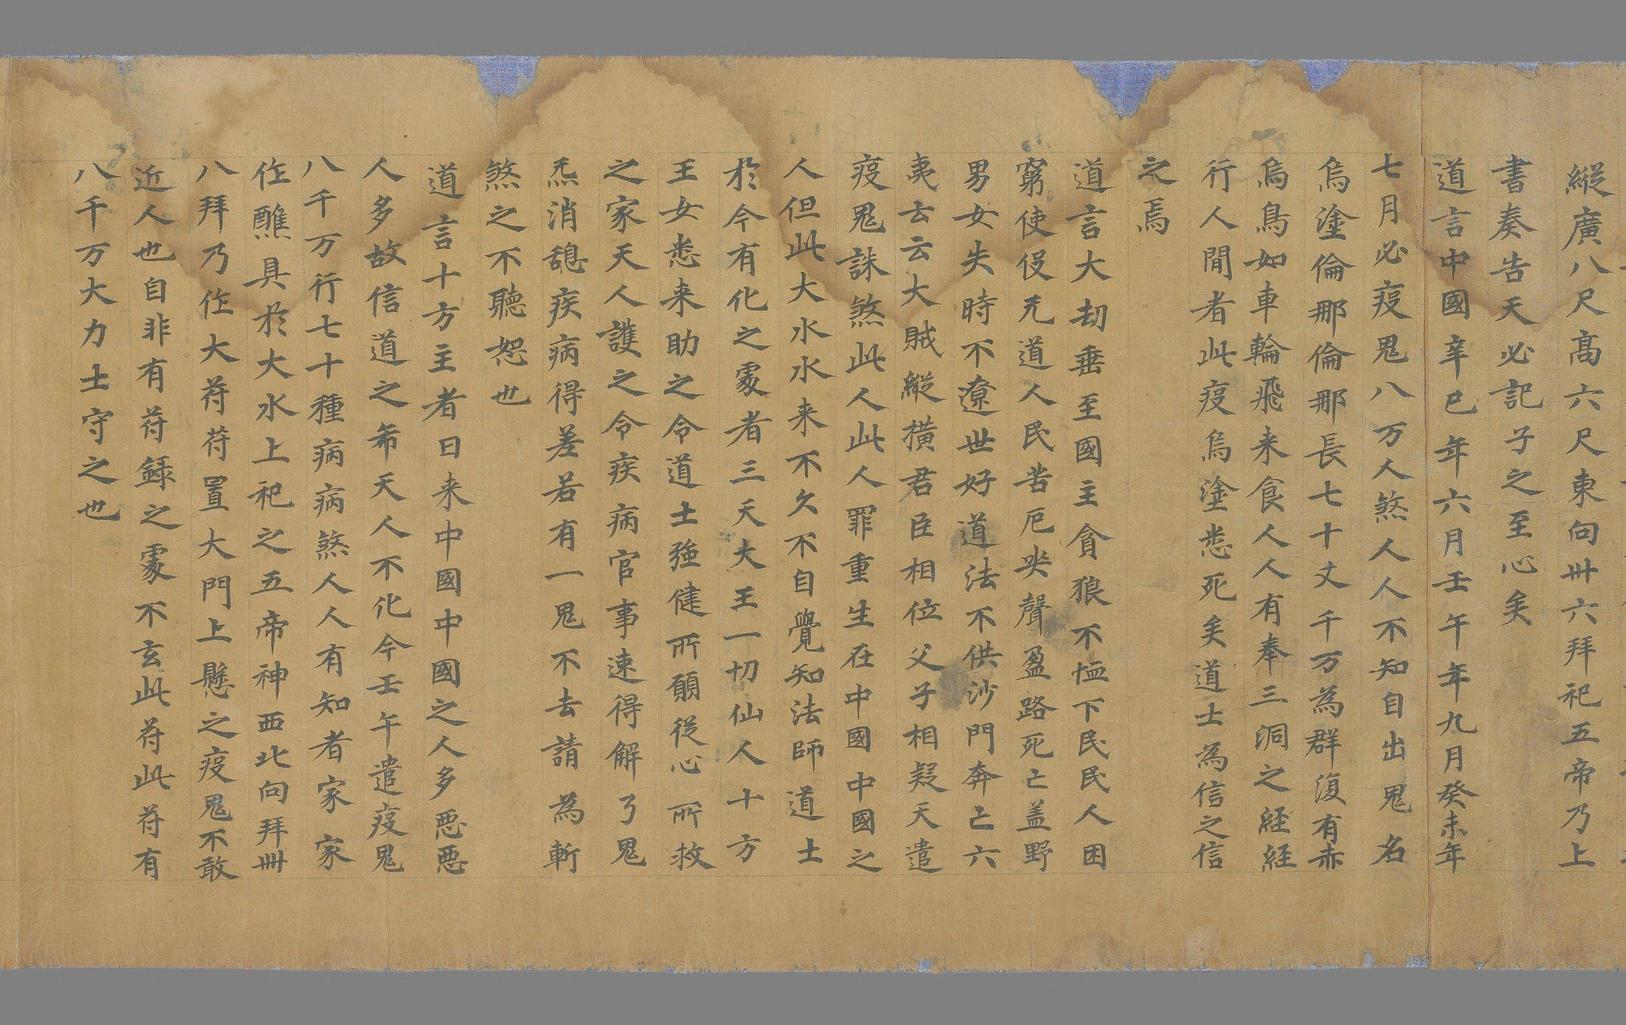 縱廣八尺高六尺東向卅六拜祀五帝乃上
書奏告天必記子之至心矣
道言中國辛巳年六月壬午年九月癸未年
七月必疫鬼八万人煞人人不知自出鬼名
烏塗倫那倫那長七十丈千万為群復有赤
烏鳥如車輪飛来食人人有奉三洞之経経
行人間者此疫烏塗悉死矣道士為信之信
之焉
道言大劫垂至國主貪狼不恤下民民人困
窮使役无道人民苦厄哭聲盈路死亡盖野
男女失時不遼世好道法不供沙門奔亡六
夷去云大賊縱撗君臣相位父子相疑天遣
疫鬼誅煞此人此人罪重生在中國中國之
人但此大水水来不久不自覺知法師道士
於今有化之處者三天大王一切仙人十方
王女悉来助之令道士強健所願従心所救
之家天人護之令疾病官事速得解了鬼
炁消憩疾病得差若有一鬼不去請為斬
煞之不聽恕也
道言十方主者曰来中國中國之人多悪悪
人多故信道之希天人不化今壬午遣疫鬼
八千万行七十種病病煞人人有知者家家
作醮具於大水上祀之五帝神西北向拜卌
八拜乃作大苻苻置大門上懸之疫鬼不敢
近人也自非有苻錄之處不玄此苻此苻有
八千万大力士守之也